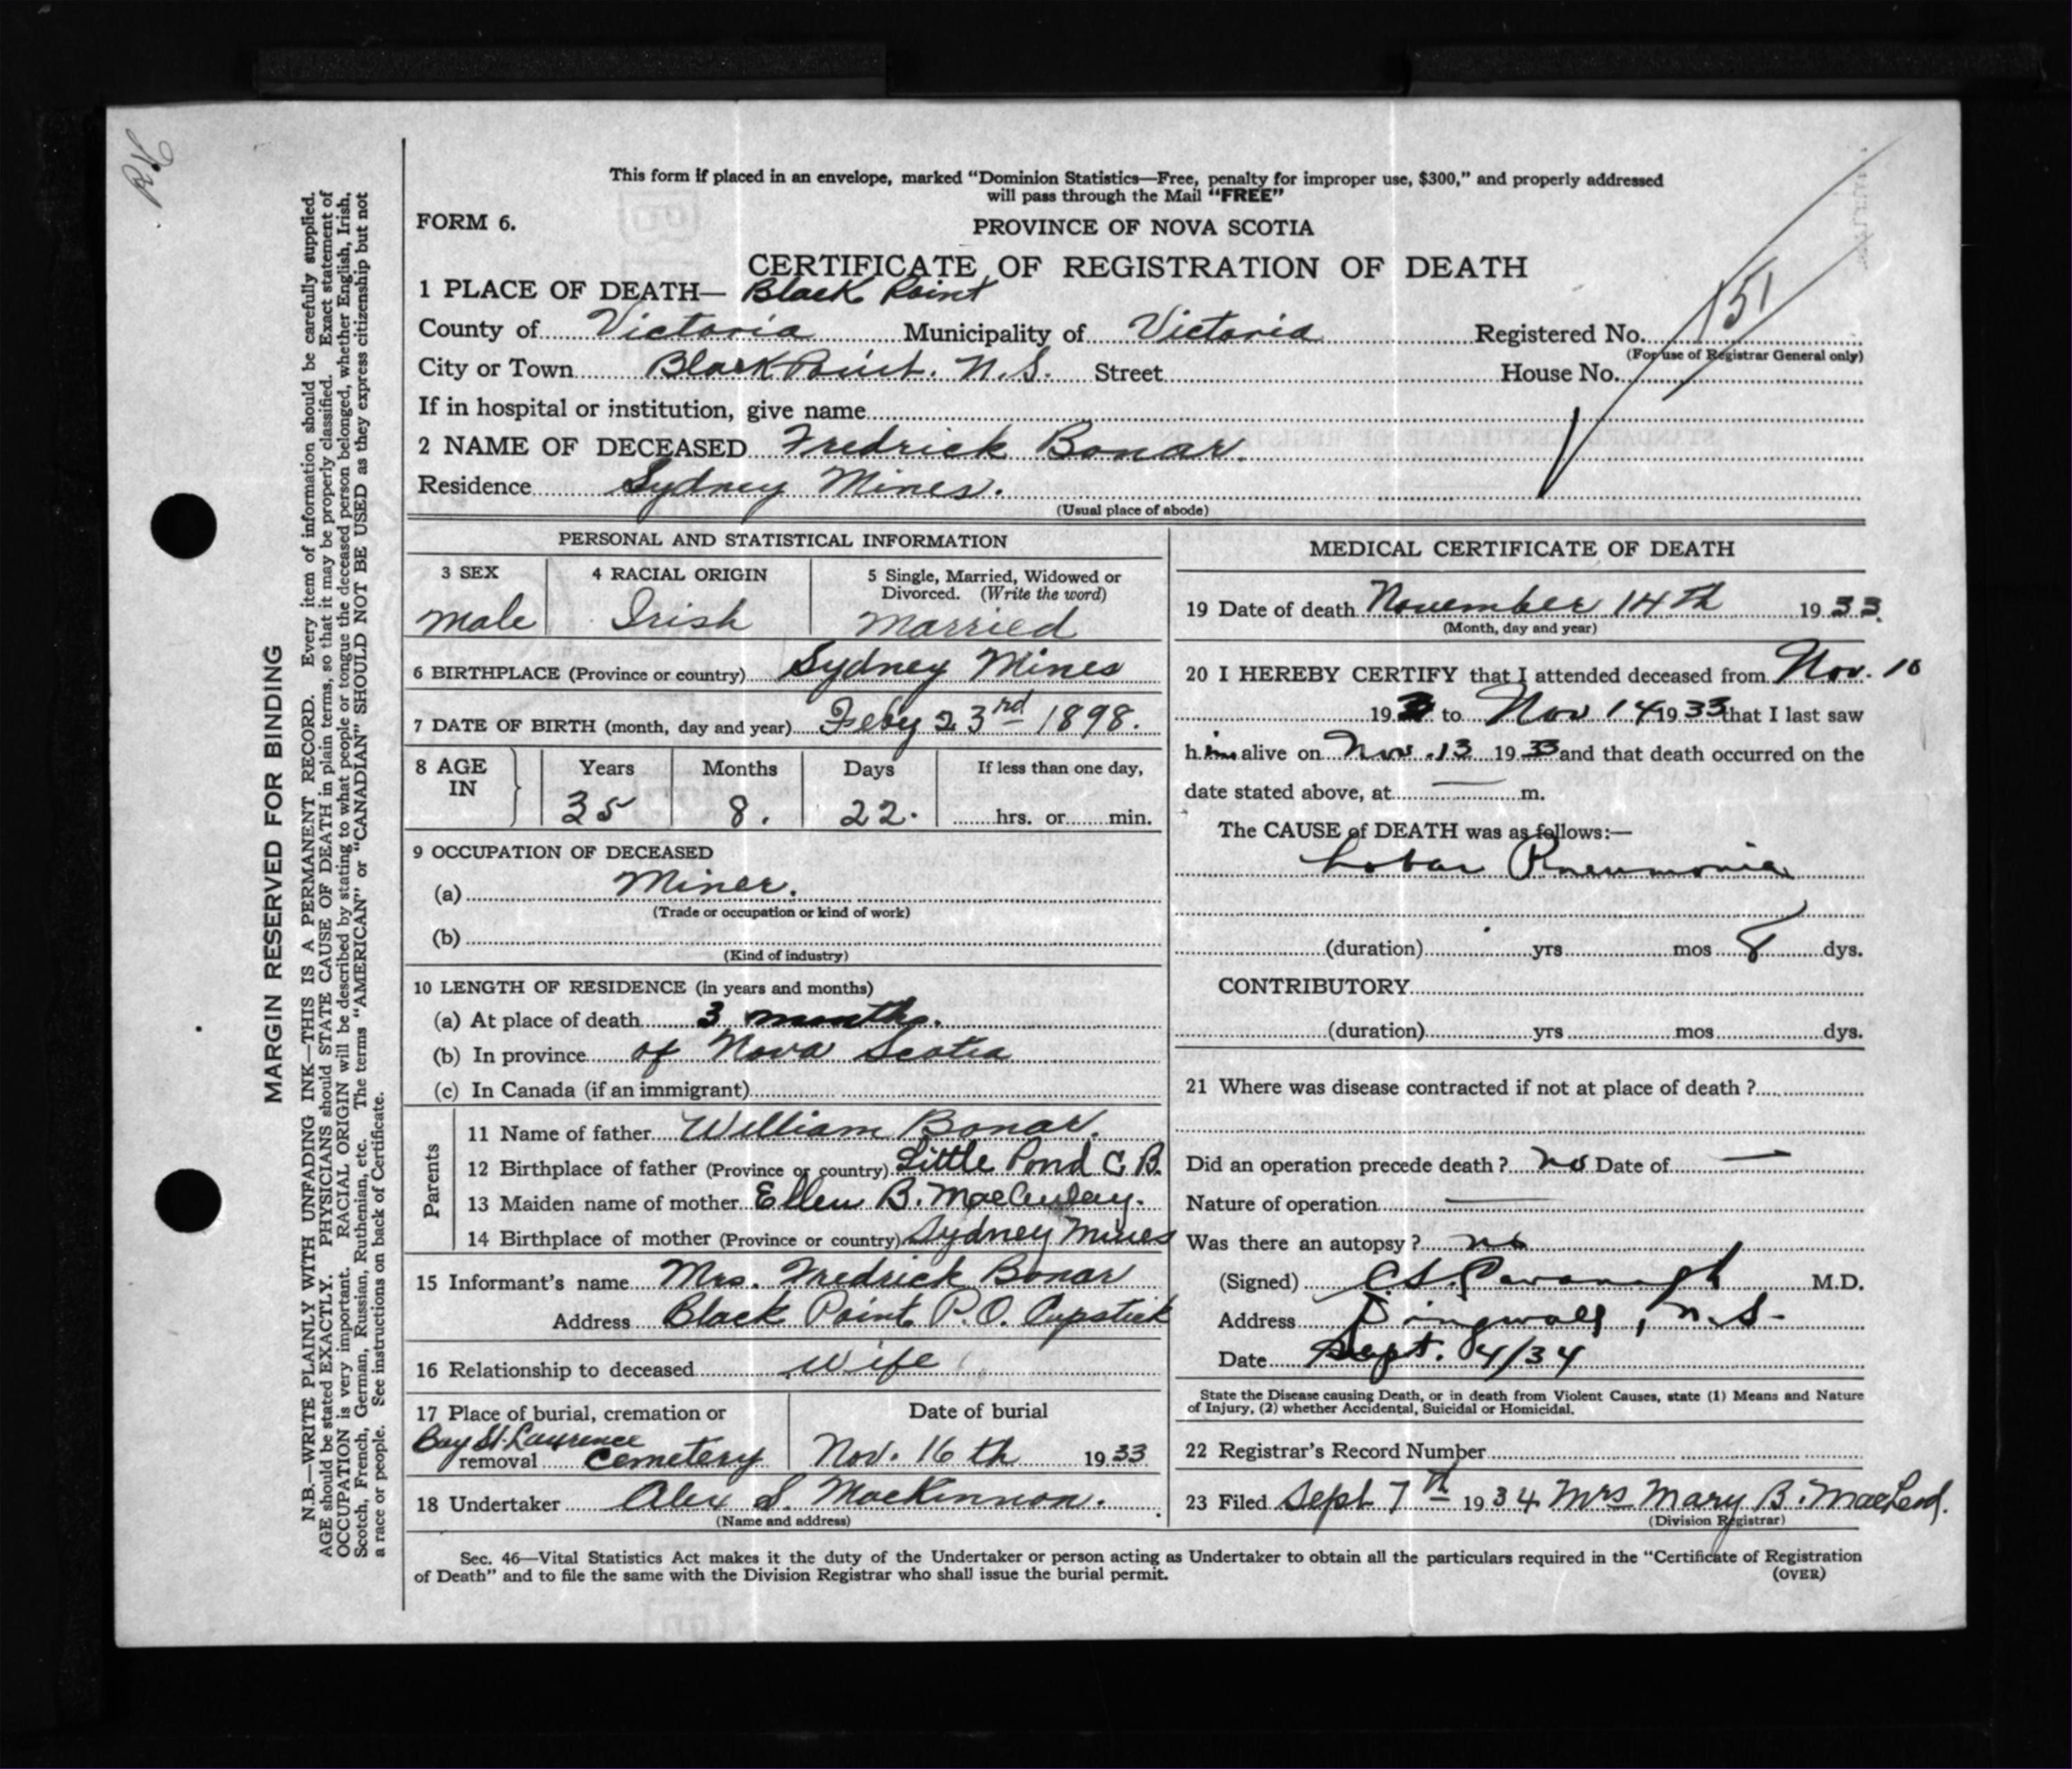 This form if placed in an envelope, marked “Dominion Statistics—Free, penalty for improper use, $300,” and properly addressed
will pass through the Mail “FREE”
FORM 6.
PROVINCE OF NOVA SCOTIA
CERTIFICATE OF REGISTRATION OF DEATH
1 PLACE OF DEATH— Black Point
County of Victoria Municipality of Victoria Registered No. 151
(For use of Registrar General only)
City or Town Black Point. N.S. Street House No.
If in hospital or institution, give name
2 NAME OF DECEASED Fredrick Bonar.
Residence Sydney Mines.
(Usual place of abode)
PERSONAL AND STATISTICAL INFORMATION
3 SEX
male
4 RACIAL ORIGIN
Irish
5 Single, Married, Widowed or
Divorced. (Write the word)
Married
6 BIRTHPLACE (Province or country) Sydney Mines
7 DATE OF BIRTH (month, day and year) Feby 23rd 1898.
8 AGE
IN
Years Months Days If less than one day,
35 8. 22. hrs. or min.
9 OCCUPATION OF DECEASED
(a) Miner.
(Trade or occupation or kind of work)
(b)
(Kind of industry)
10 LENGTH OF RESIDENCE (in years and months)
(a) At place of death 3 months.
(b) In province of Nova Scotia
(c) In Canada (if an immigrant)
Parents
11 Name of father William Bonar.
12 Birthplace of father (Province or country) Little Pond C B.
13 Maiden name of mother Ellen B.
14 Birthplace of mother (Province or country) Sydney Mines
15 Informant's name Mrs. Fredrick Bonar
Address Black Point P.O. Capstick
16 Relationship to deceased wife
17 Place of burial, cremation or
Bay St. Lawrence
removal Cemetery
Date of burial
Nov. 16th 1933
18 Undertaker Alex S. MacKinnon.
(Name and address)
MEDICAL CERTIFICATE OF DEATH
19 Date of death November 14th 1933.
(Month, day and year)
20 I HEREBY CERTIFY that I attended deceased from Nov. 10
193 to Nov 14 1933 that I last saw
him alive on Nov. 13 1933 and that death occurred on the
date stated above, at — m.
The CAUSE of DEATH was as follows:—
Lobar Pneumonia
(duration) yrs mos 8 dys.
CONTRIBUTORY
(duration) yrs mos dys.
21 Where was disease contracted if not at place of death ?
Did an operation precede death ? no Date of —
Nature of operation —
Was there an autopsy ? no
(Signed) C.S. Cavanagh M.D.
Address Dingwall, N.S.
Date Sept. 4/34
State the Disease causing Death, or in death from Violent Causes, state (1) Means and Nature
of Injury, (2) whether Accidental, Suicidal or Homicidal.
22 Registrar's Record Number
23 Filed Sept 7th 1934 Mrs Mary B. MacLeod.
(Division Registrar)
Sec. 46—Vital Statistics Act makes it the duty of the Undertaker or person acting as Undertaker to obtain all the particulars required in the “Certificate of Registration
of Death” and to file the same with the Division Registrar who shall issue the burial permit.
(OVER)
MARGIN RESERVED FOR BINDING
N.B.—WRITE PLAINLY WITH UNFADING INK—THIS IS A PERMANENT RECORD. Every item of information should be carefully supplied.
AGE should be stated EXACTLY. PHYSICIANS should STATE CAUSE OF DEATH in plain terms, so that it may be properly classified. Exact statement of
OCCUPATION is very important. RACIAL ORIGIN will be described by stating to what people or tongue the deceased person belonged, whether English, Irish,
Scotch, French, German, Russian, Ruthenian, etc. The terms “AMERICAN” or “CANADIAN” SHOULD NOT BE USED as they express citizenship but not
a race or people. See instructions on back of Certificate.